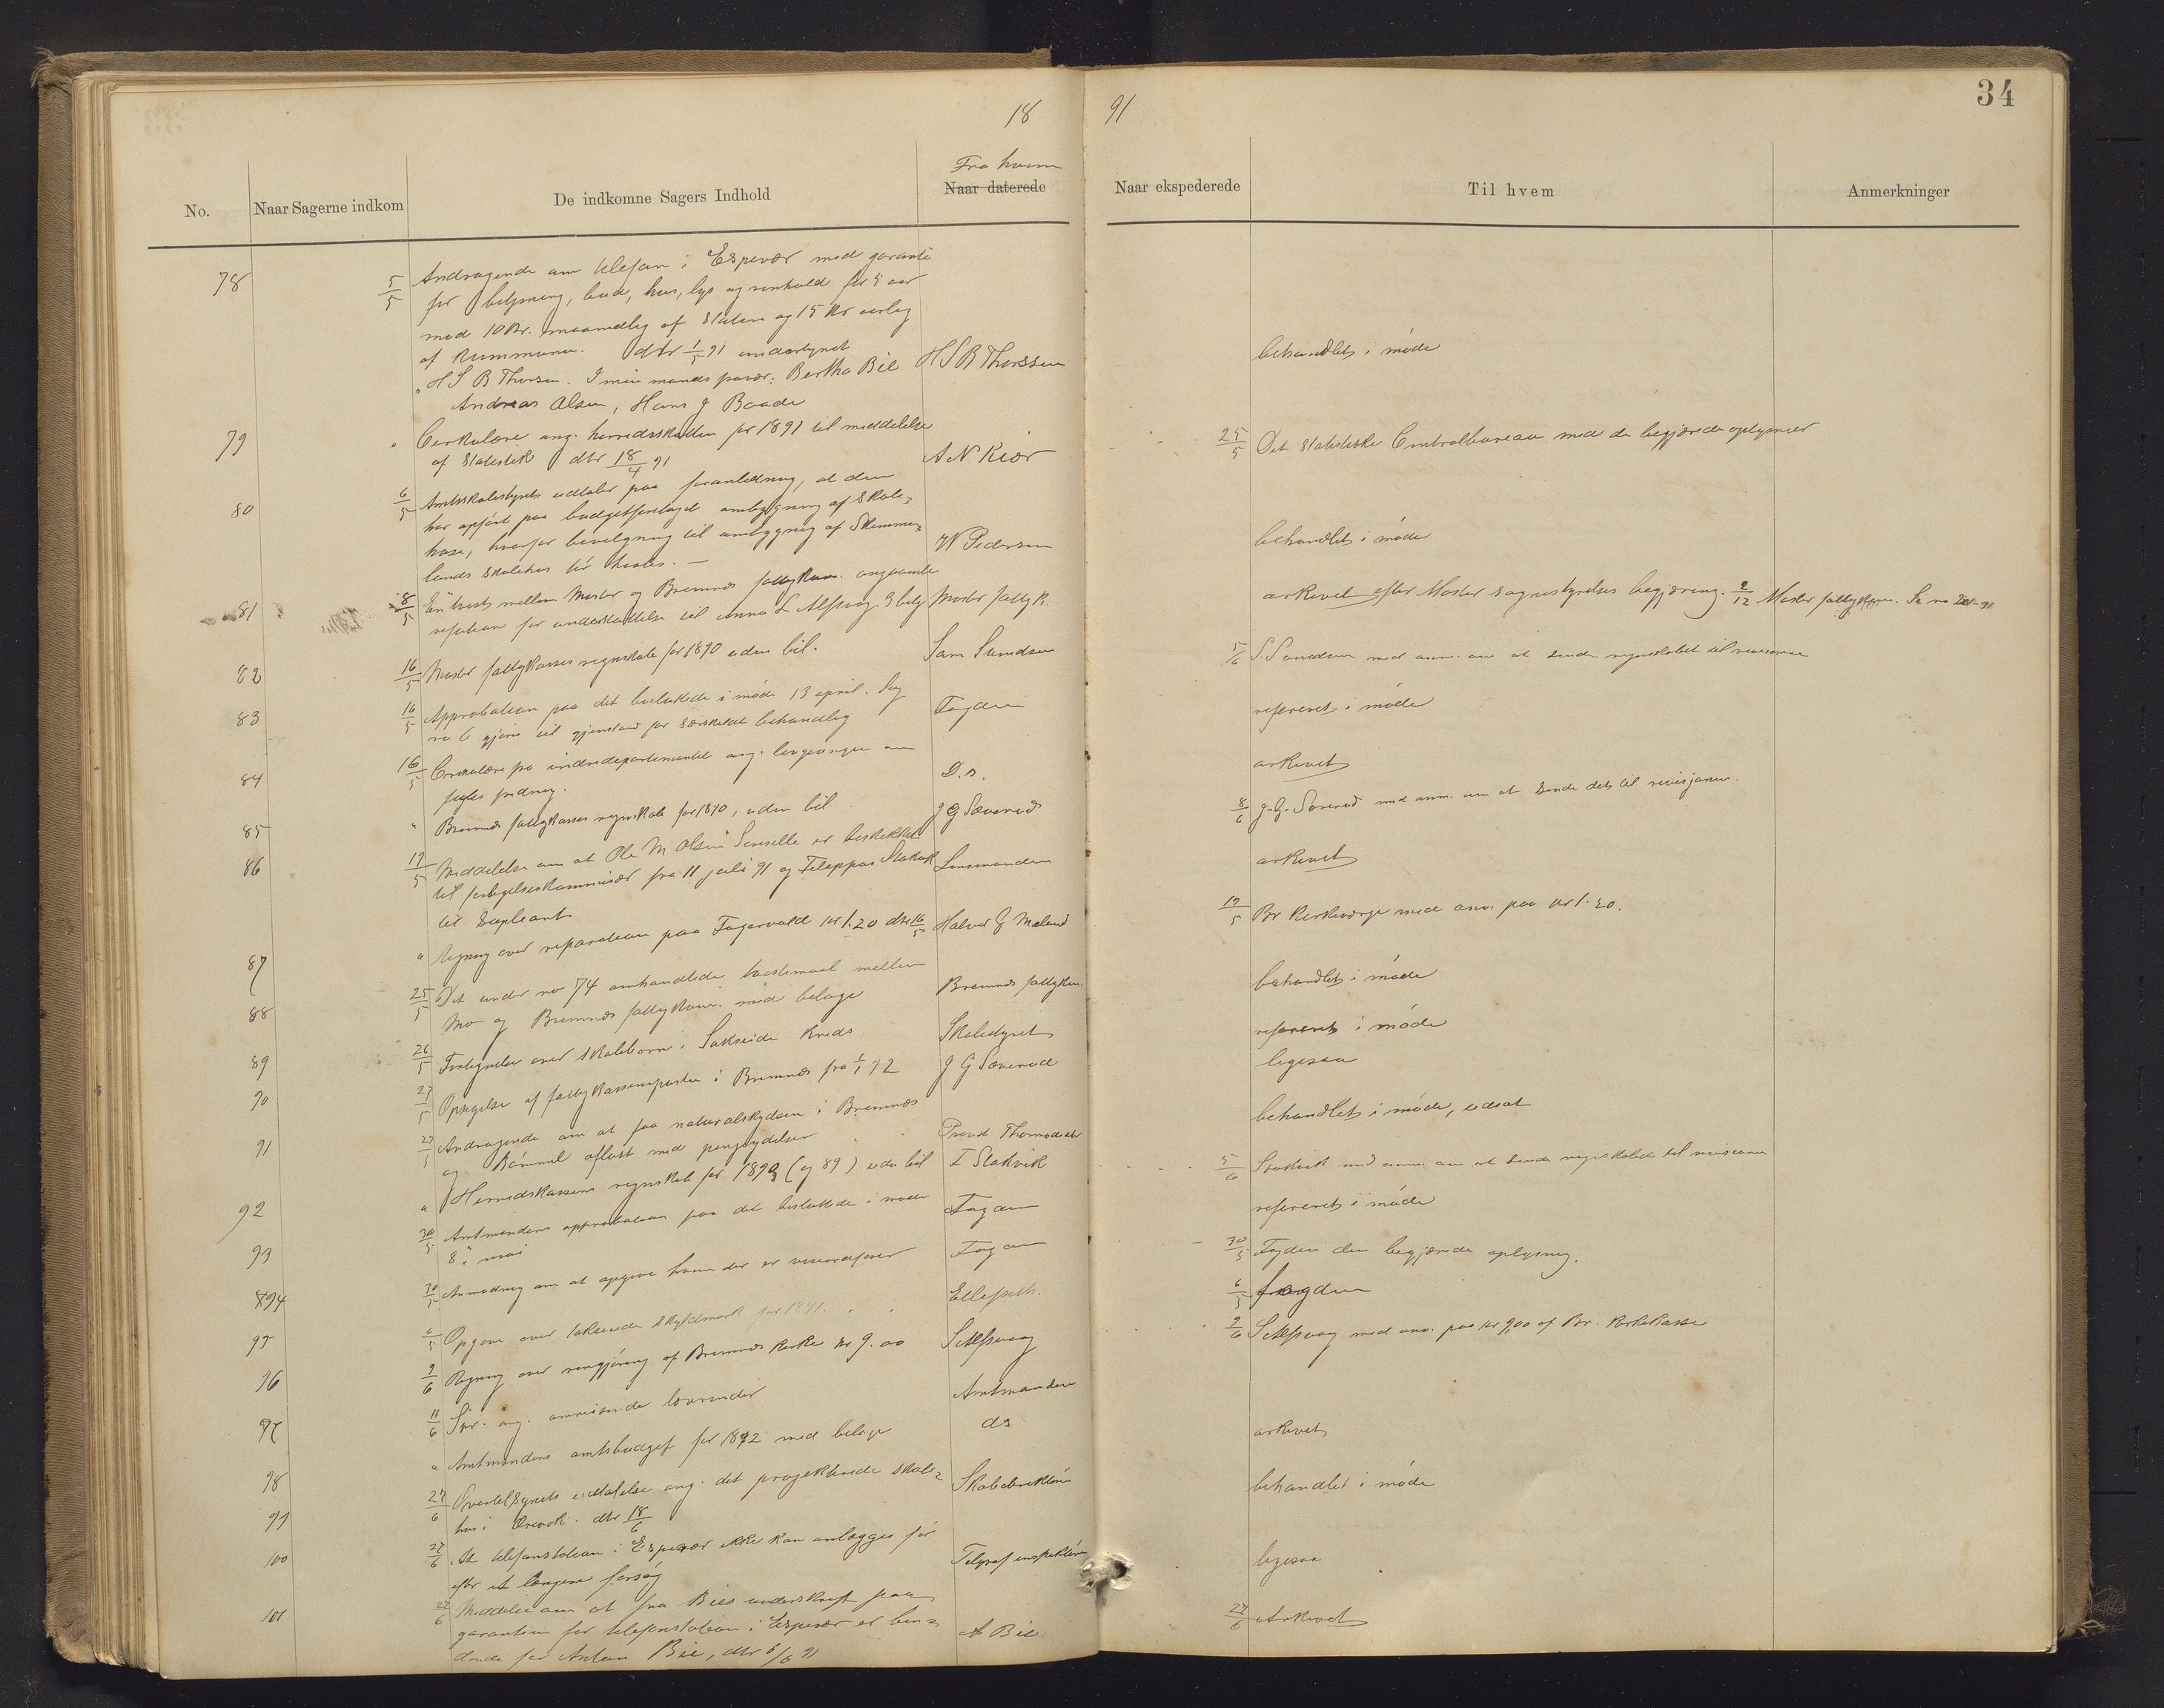 34
18 91
No.
Naar Sagerne indkom
De indkomne Sagers Indhold
Fra hvem
Naar daterede
Naar ekspederede
Til hvem
Anmerkninger
78 5/5 Andragende om telefon i Espevær med garanti
for betjening, bud, hus, lys og renhold for 5 aar
mod 10 Kr. maanedlig af Staten og 15 Kr aarlig
af Kummunen. dtr 1/5 91 undertegnet
H S B Thorsen. I min mands fravær: Bertha Bie H S B Thorssen behandlet i møde
Andreas Olsen, Hans J Baade
79 " Cirkulære ang. herredsskatten for 1891 til meddelelse
af statistik dtr 18/4 91 A N Kiær 25/5 Det statistiske Centralbureau med de begjærede oplysninger
80 6/5 Amtsskolestyrets udtaler paa foranledning, at den
har opført paa budgetforslaget ombygning af Skole=
huse, hvorfor bevilgning til ombygning af Skimme=
lands skolehus bør haabes. — W Pedersen behandlet i møde
81 8/5 En tvist mellem Moster og Bremnes fattigkom. angaaende
refusion for understøttelse til Anna L Alfsvaag. 3 bilg Moster fattigk. arkivet efter Moster sognestyrelses begjæring. 2/12 Moster fattigkom.
82 16/5 Moster fattigkasses regnskab for 1890 uden bil. Sam Svendsen 5/6 S. Svendsen med anm. om at sende regnskabet til revisorerne
83 16/5 Approbation paa det besluttede i møde 13 april. Sag
no 6 gjøres til gjenstand for særskildt behandling Fogden refereret i møde
84 16/5 Cirkulære fra indredepartementet ang. lovgivningen om
fugles fredning. D.s. arkivet
85 " Bremnes fattigkasses regnskab for 1890, uden bil J G Sæverud 8/6 J. G. Sæverud med anm. om at sende dets til revisjonen.
86 19/5 Meddelelse om at Ole M Olsen Sensette er beskikket
til forligelseskommissær fra 11 juli 91 og Fileppus Stokvik Lensmanden arkivet
til Supleant
87 " Regning over reparation paa Fagervold kr 1.20 dtr 16/5 Halvor G Meland 19/5 Br Kirkeværge med anv. paa kr 1.20.
88 25/5 Det under no 74 omhandlede tvistemaal mellem
Mo- og Bremnes fattigkom. med belage Bremnes fattigkom. behandlet i møde
89 26/5 Fortegnelse over skolebørn i Sakseide Kreds Skolestyret refereret i møde
90 27/5 Opsigelse af fattigkasserposten i Bremnes fra 1/1 92 J G Sæverud ligesaa
91 27/5 Andragende om at faa naturalskydsen i Bremnes
og Bømmel afløst med pengeydelser Provst Thormodsæter behandlet i møde, udsat
92 " Herredskassens regnskab for 1890 (og 89) uden bil F Stokvik 5/6 Stokvik med anm. om at sende regnskabet til revisionen
93 30/5 Amtmandens approbation paa det besluttede i møde
8de mai Fogden refereret i møde
94 30/5 Anmodning om at opgive hvem der er Fogden 30/5 Fogden den begjærede oplysning.
95 Opgave over skyldmark for 1891. 6/5 fogden
96 9/6 Regning over rengjøring af Bremnes Kirke kr 9.00 S Alfsvaag 9/6 S Alfsvaag med anv. paa kr 9,00 af Br. Kirkekasse
97 11/6 Skr. ang. omreisende Amtmanden
98 " Amtmandens amtsbudget for 1892 med belage ds arkivet
99 27/6 Overtilsynets udtalelse ang. det projekterede skole=
hus i dtr 18/6 Skoledirektøren behandlet i møde
100 27/6 At telefonstation i Espevær ikke kan anlægges før
efter et længere forsøg Telegrafinspektøren ligesaa
101 27/6 Meddeler om at fru Bies underskrift paa
garantien for telefonstation i Espevær er bin=
dende for Anton Bie, dtr 6/6 91 A Bie 27/6 Arkivet